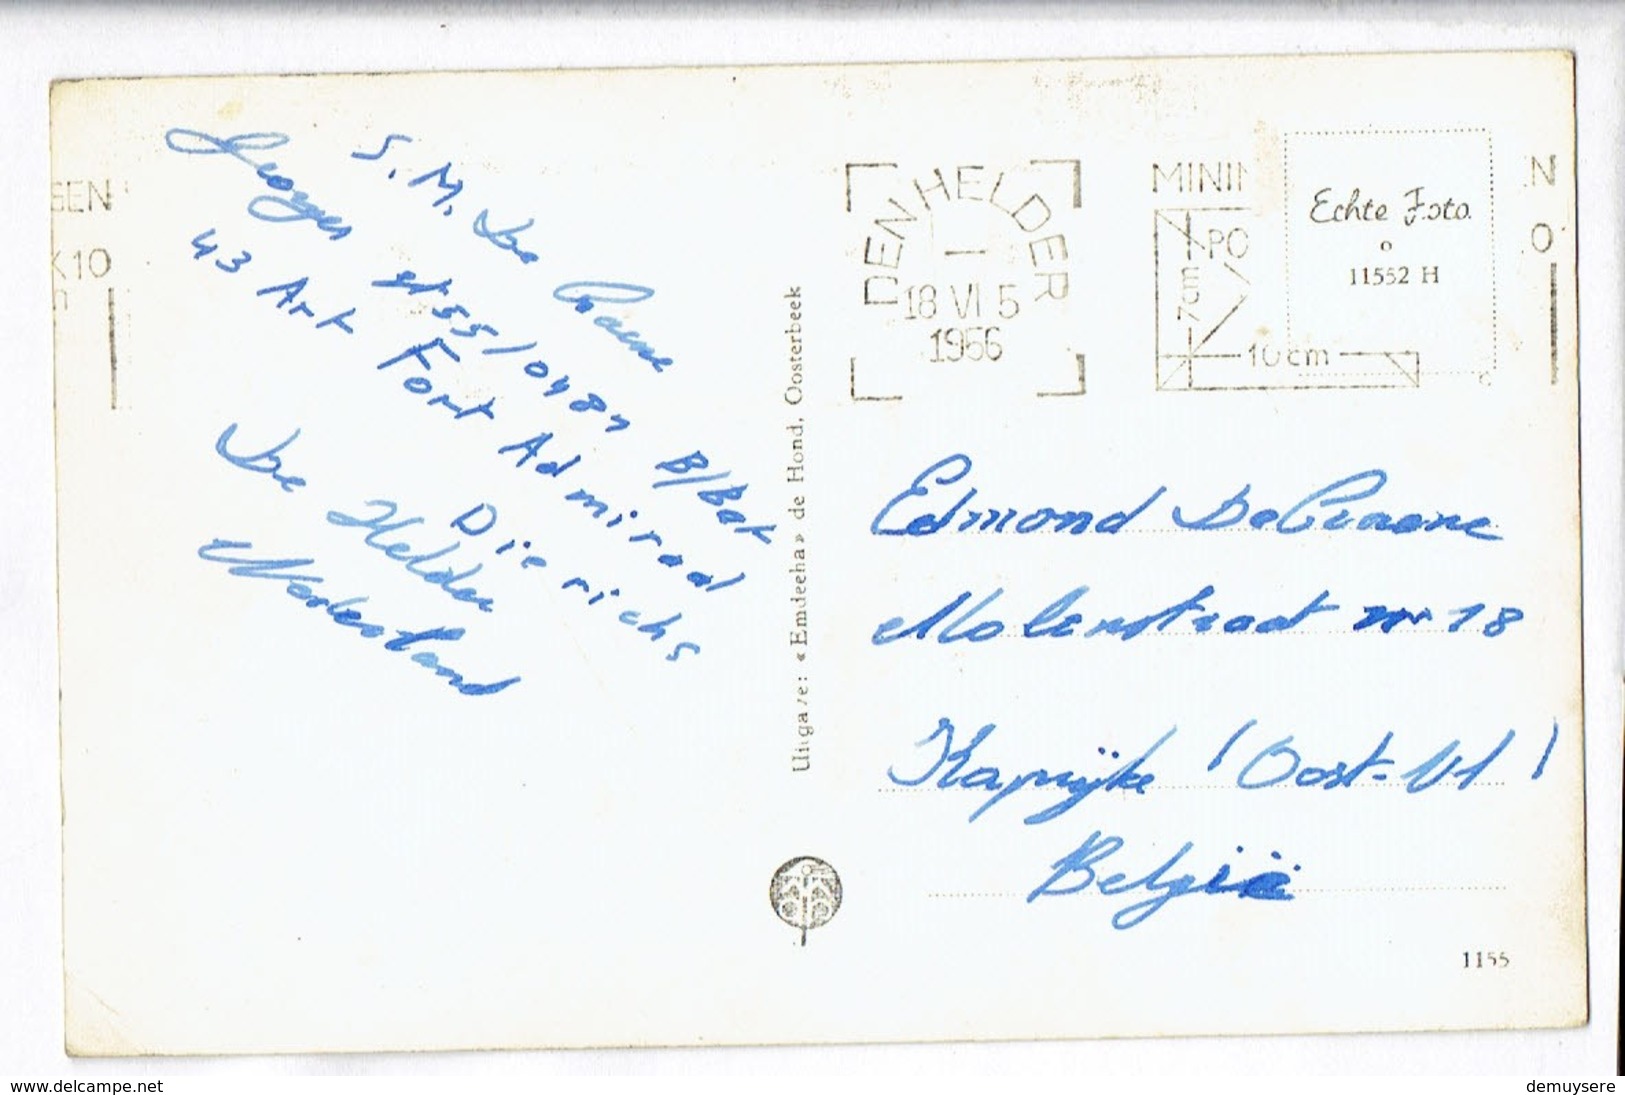 S. M. De Craene
Georges st 55/0484 B/Bat
43 Art Fort Admiraal
Dierichs
Den Helder
Nederland
Uitgave: «Emdeeha» de Hond, Oosterbeek
DEN HELDER
18 VI 5
1956
GEN
X10
MINIM
PO
7 cm
10 cm
N
O
Echte Foto
11552 H
Edmond De Craene
Molenstraat nr 18
Kaprijke (Oost-Vl)
België
1155
www.delcampe.net
demuysere